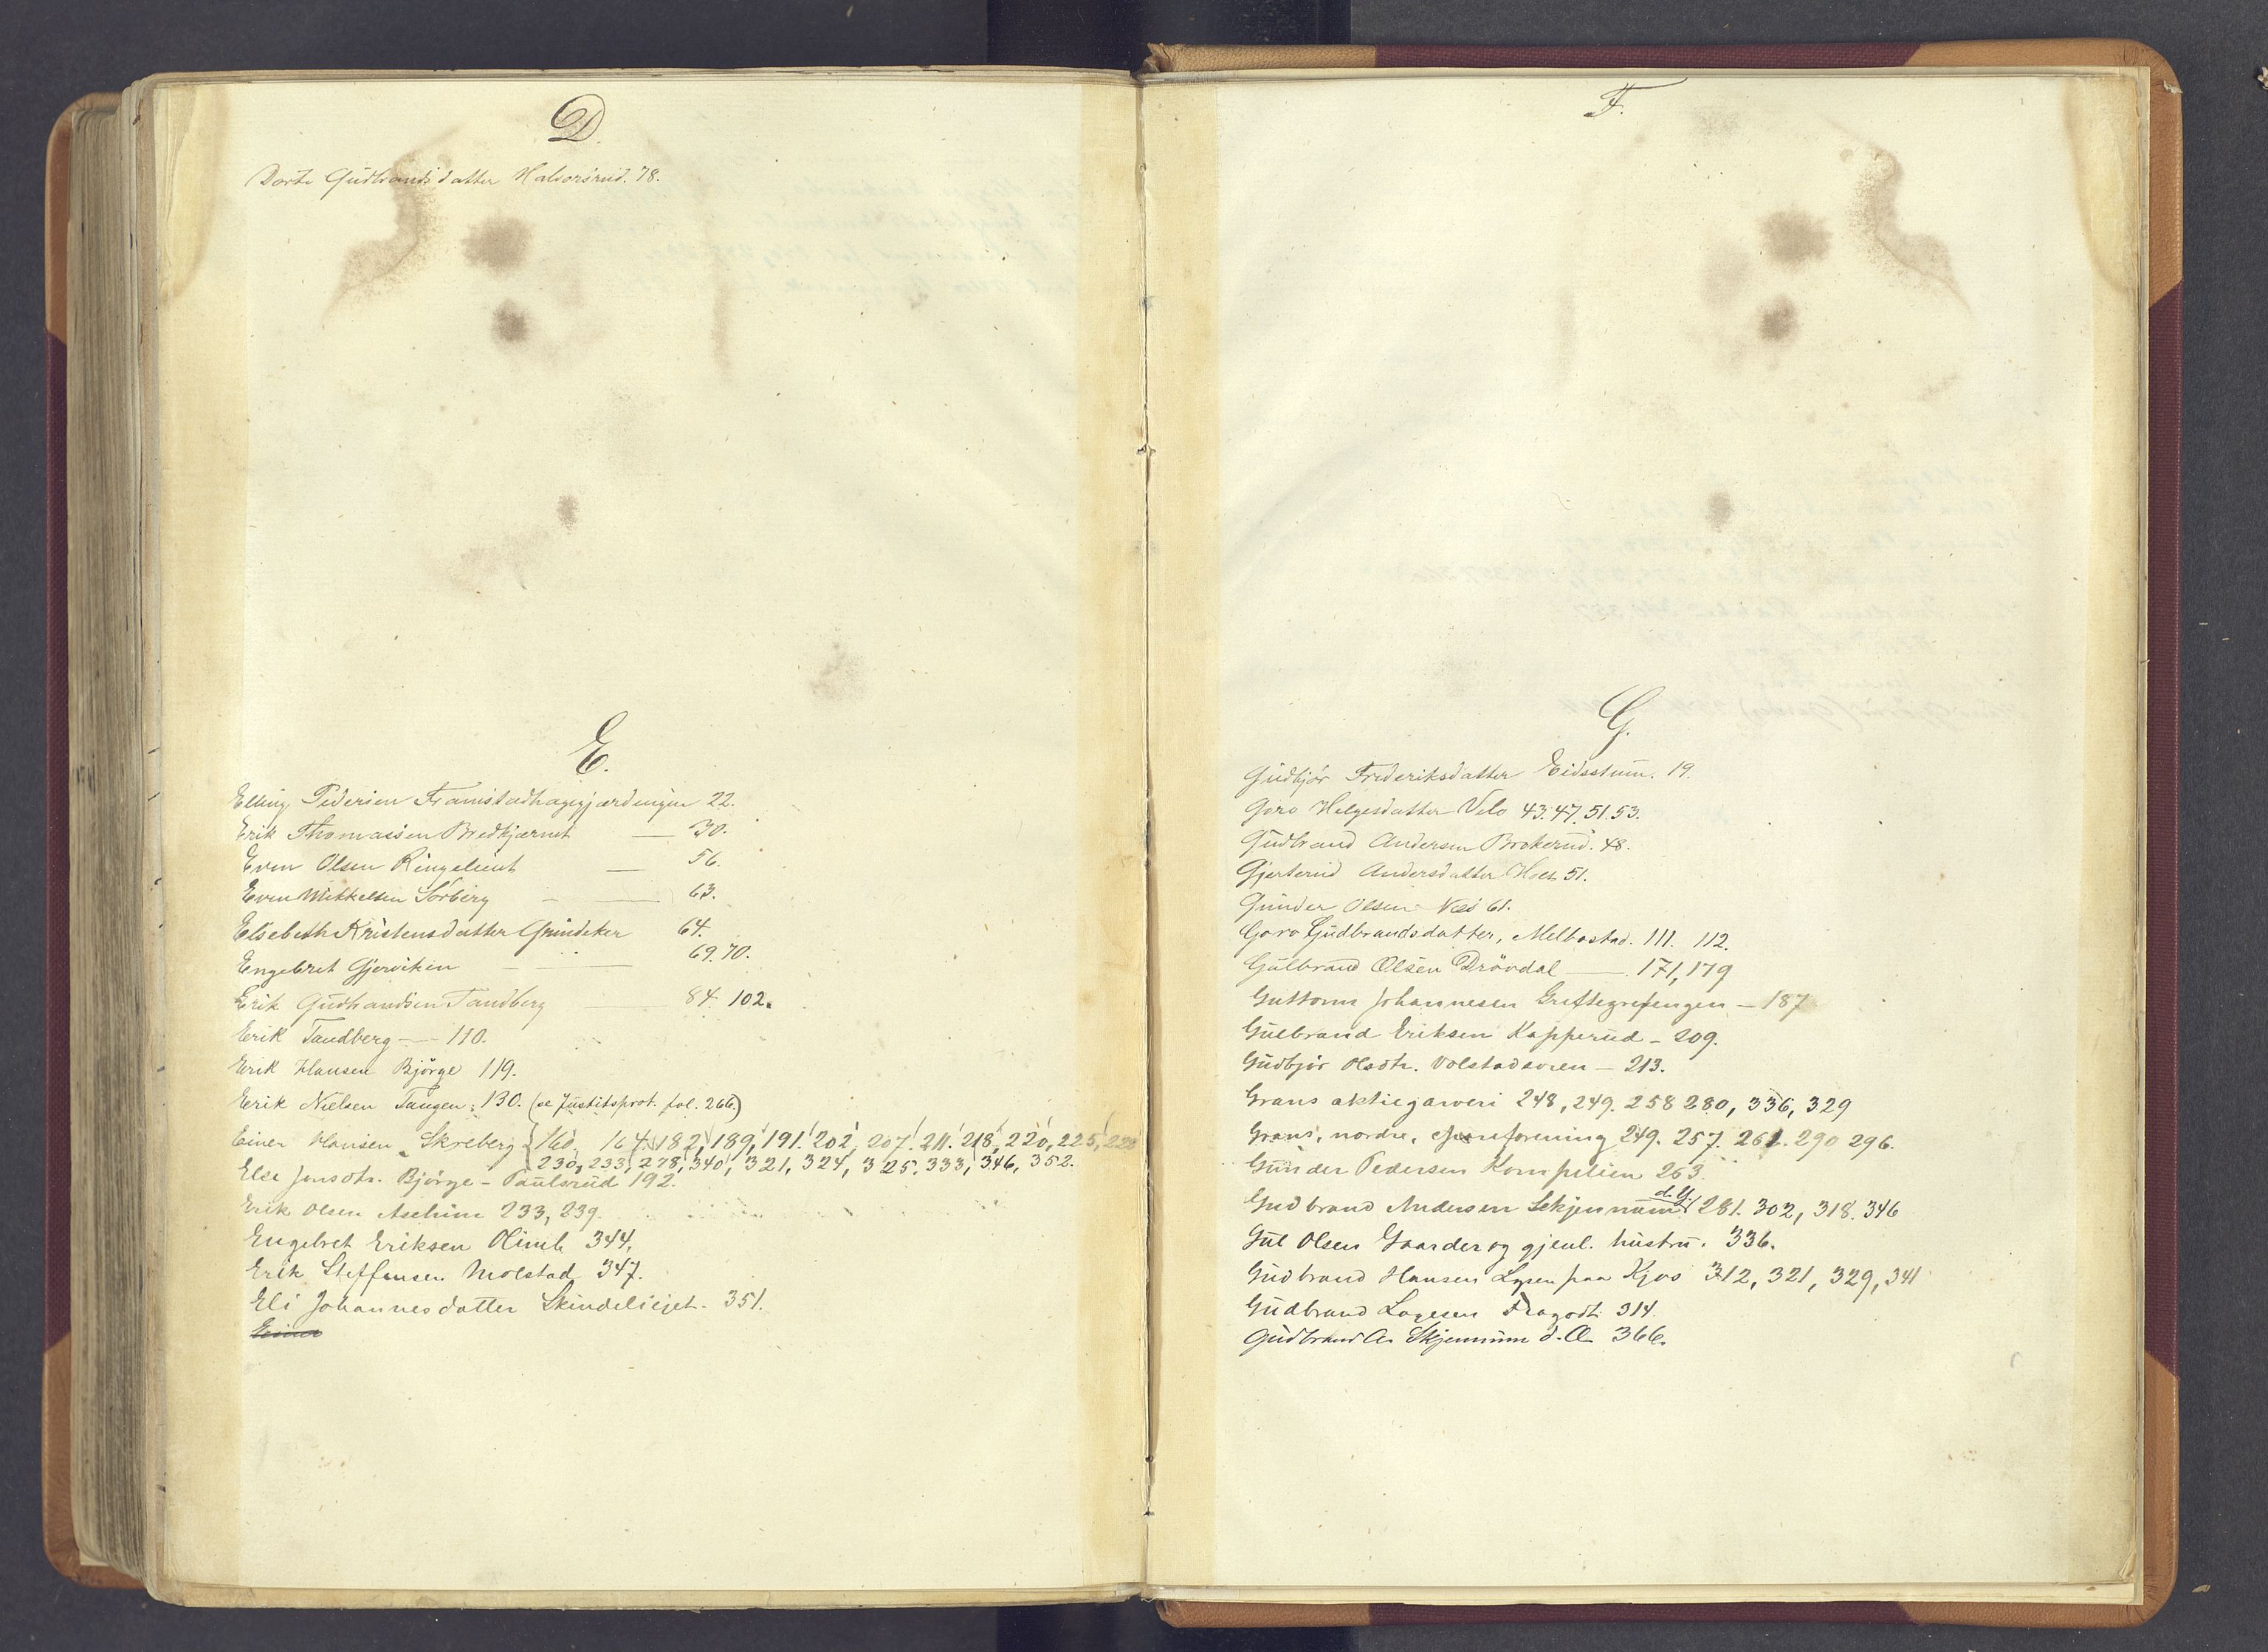 D.
Dorte Gudbrandsdatter Halvorsrud. 78.
E.
Elling Pedersen Framstadhagegjærdingen 22.
Erik Thomassen Bredkjærnet — 30.
Even Olsen Ringelient — 56.
Even Mikkelsen Sörberg — 63.
Elsebeth Kristensdatter Grindeker 64.
Engebret Gjerviken — 69. 70.
Erik Gudbrandsen Tandberg — 84. 102.
Erik Tandberg — 110.
Erik Hansen Bjørge 119.
Erik Nielsen Tangen: 130. (se Justitsprot. fol. 266.)
Einer Hansen Skreberg { 160, 164. 182, 189, 191. 202, 207. 211. 218, 220, 225, 228
230, 233, 278, 340, 321, 324, 325. 333, 346, 352.
Else Jonsdtr. Bjørge - Paulsrud 192.
Erik Olsen Aschim 233, 239.
Engebret Eriksen Olimb 344,
Erik Steffensen Molstad 347.
Eli Johannesdatter Skindelieiet. 351.
Einer
F.
G.
Gudbjör Frederiksdatter Eidsstum. 19.
Goro Helgesdatter Velo 43. 47. 51. 53.
Gudbrand Andersen Brokerud. 48.
Gjertrud Andersdatter Hoet 51.
Gunder Olsen Næs 61.
Goro Gudbrandsdatter, Melbostad. 111. 112.
Gulbrand Olsen Drövdal — 171, 179
Guttorm Johannesen Greftegrefengen — 187
Gulbrand Eriksen Kapperud - 209.
Gudbjör Olsdtr. Volstadsveen — 213.
Grans aktiegarveri 248, 249. 258 280, 336, 329
Grans, nordre, 249. 257. 261. 290 296.
Gunder Pedersen Kompelien 263.
Gudbrand Andersen Skjennum d. y. 281. 302, 318. 346
Gul Olsen Gaarder og gjenl. hustru. 336.
Gudbrand Hansen Lysen paa Kjos 312, 321, 329, 341
Gudbrand Lagesen Fragodt 314
Gudbrand A. Skjennum d. Æ 366.